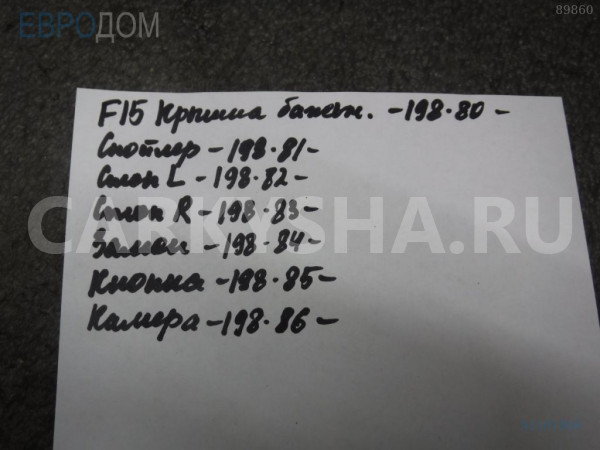 ЕВРОДОМ
89860
F15 Крышка багаж. -198.80-
Спойлер -198.81-
Стоп L -198.82-
Стоп R -198.83-
CARKYSHA.RU
Замок -198.84-
Кнопка -198.85-
Камера -198.86-